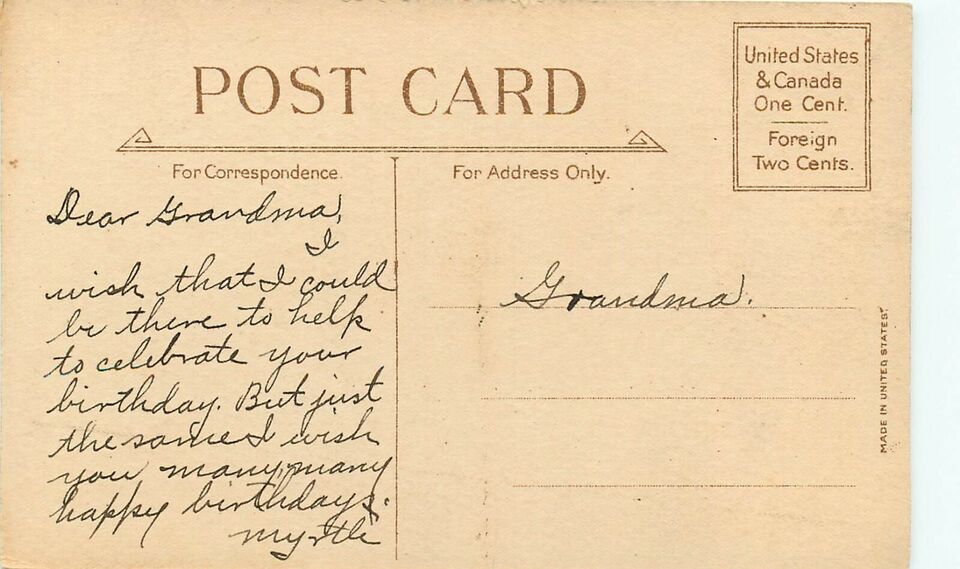 POST CARD
United States
& Canada
One Cent.
Foreign
Two Cents.
For Correspondence.
For Address Only.
Dear Grandma,
I
wish that I could
be there to help
to celebrate your
birthday. But just
the same I wish
you many, many
happy birthdays.
Myrtle
Grandma.
MADE IN UNITED STATES